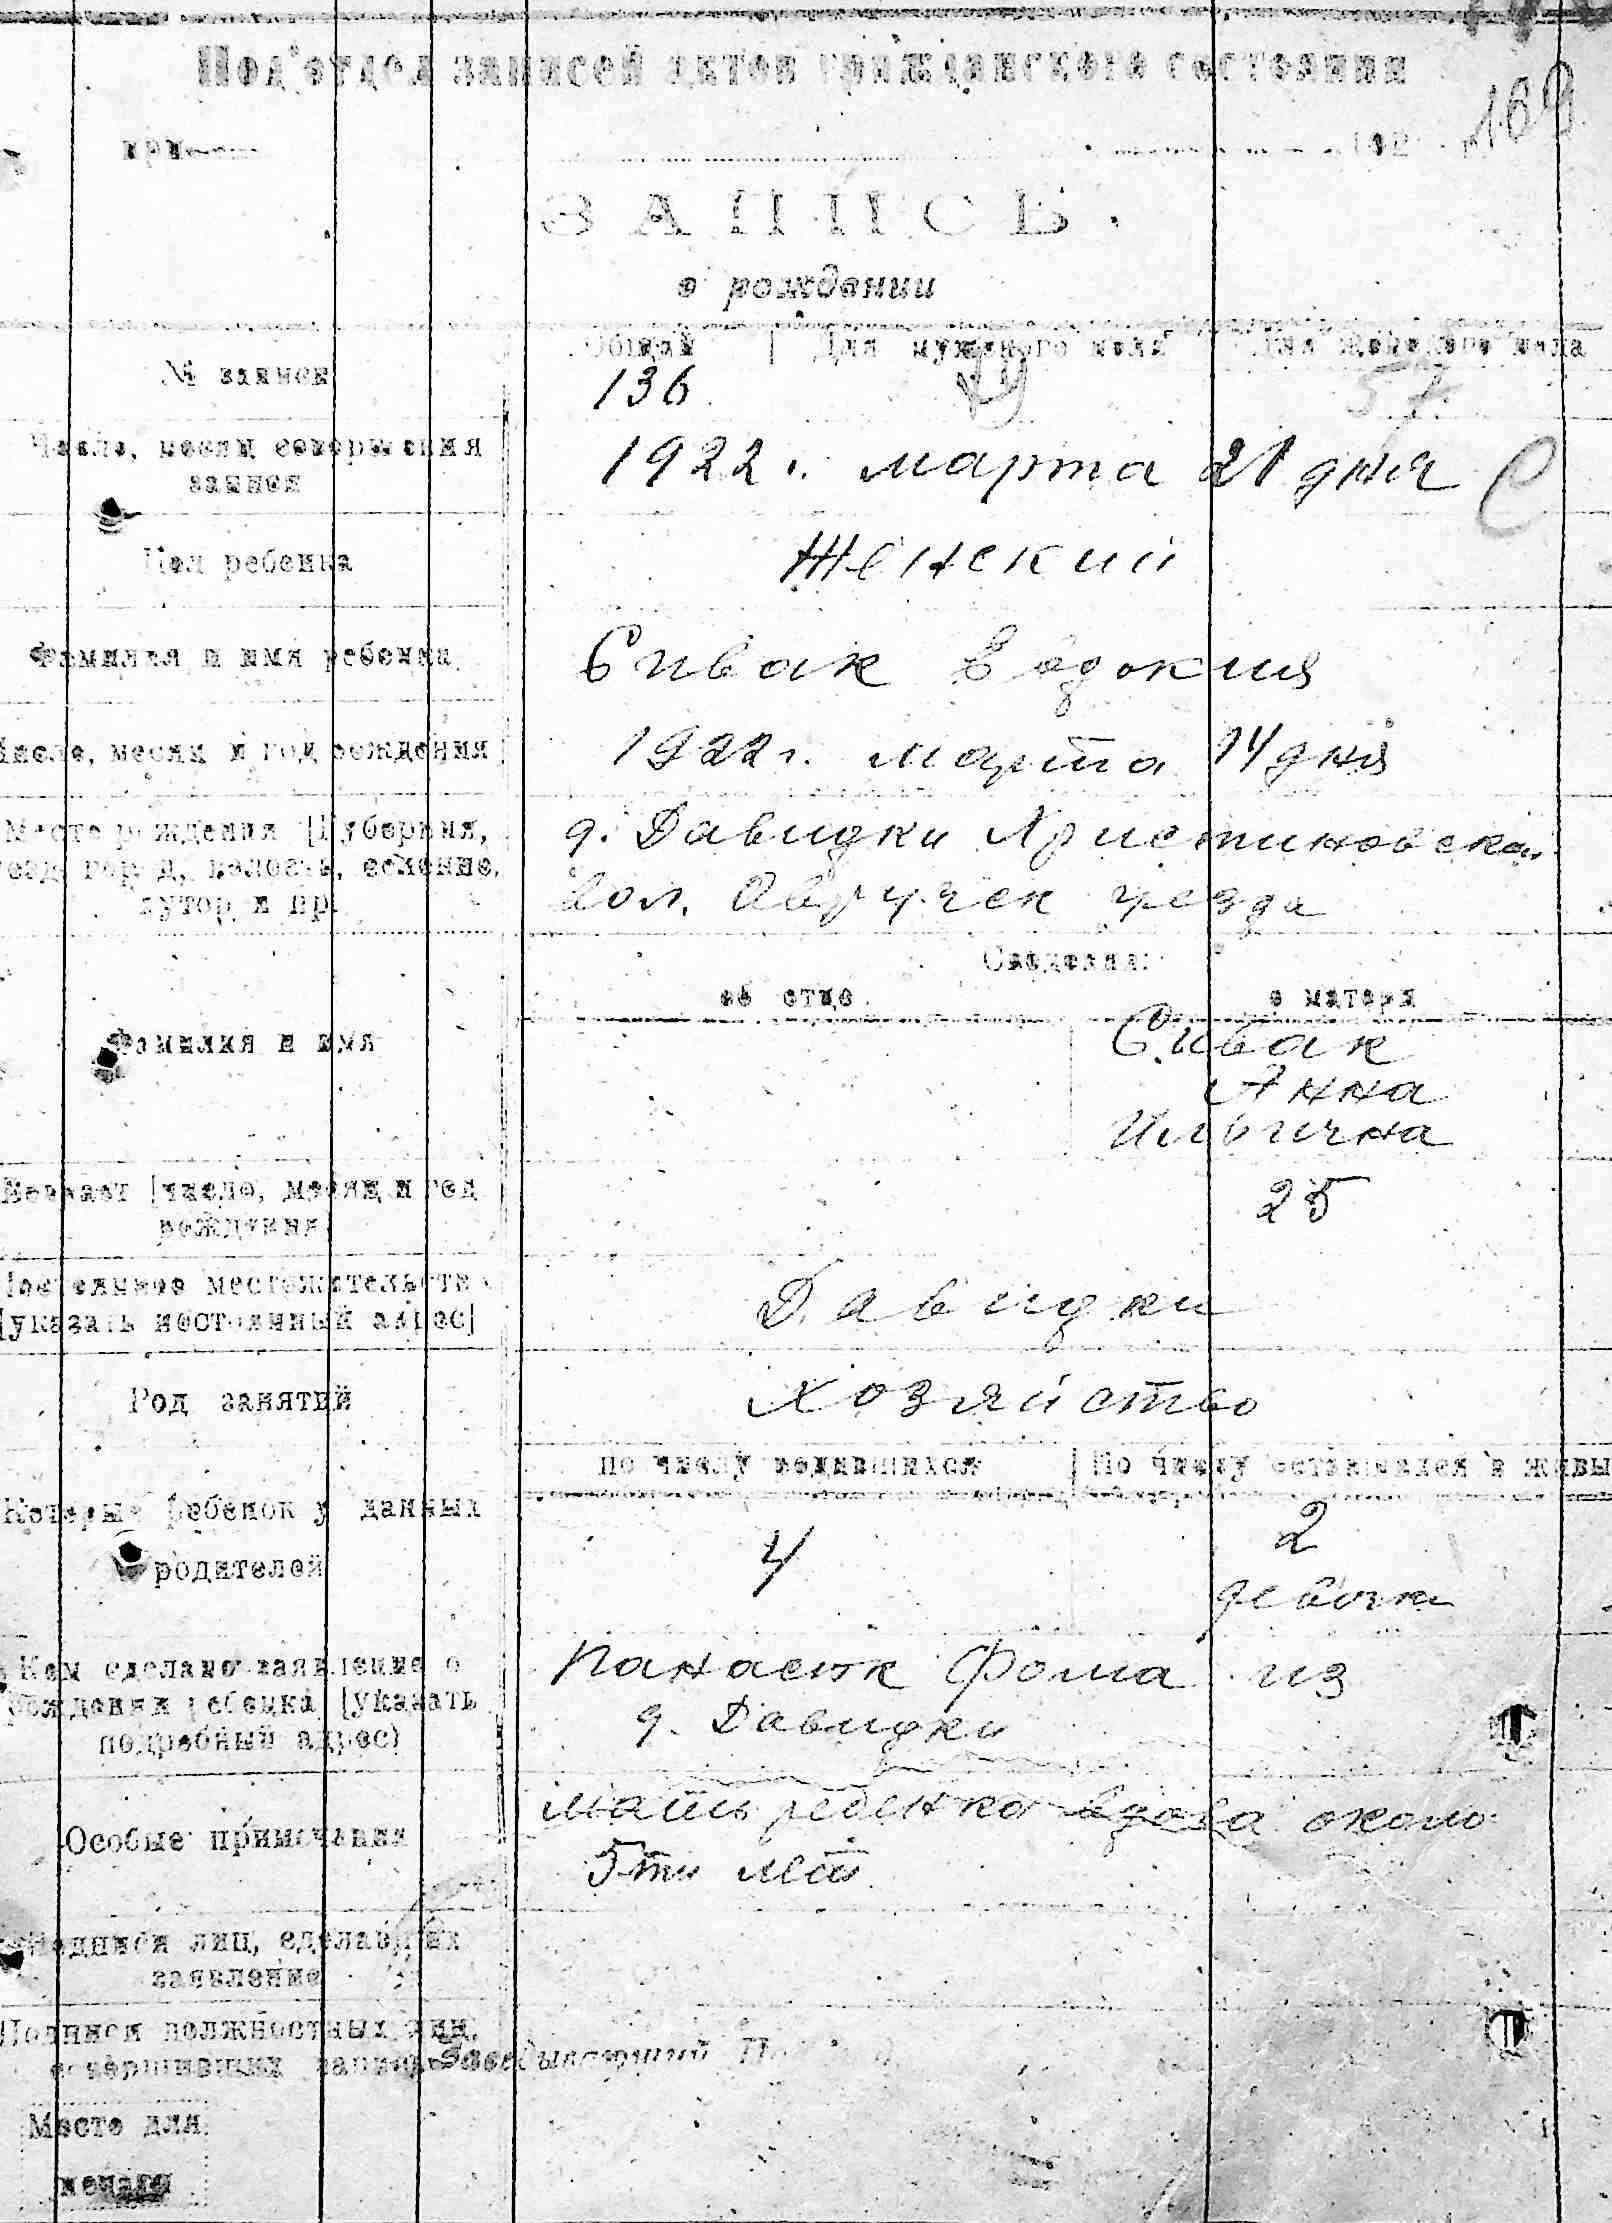 Подотдел записей актов гражданского состояния
при
192 г.
169
ЗАПИСЬ
о рождении
Общий | Для мужского пола | Для женского пола
№ записи
136 57
Число, месяц совершения
записи
1922 г. марта 21 дня С
Пол ребенка
Женский
Фамилия и имя ребенка
Сивак Евдокия
Число, месяц и год рождения
1922 г. марта 14 дня
Место рождения [Губерния,
уезд, город, волость, селение,
хутор и пр.
д. Давидки Христиновской
вол. Овручск уезда
Сведения:
об отце о матери
Фамилия и имя
Сивак
Анна
Ильична
Возраст [число, месяц и год
рождения
25
Постоянное местожительство
[указать постоянный адрес]
Давидки
Род занятий
Хозяйство
по числу родившихся | По числу оставшихся в живых
Который ребенок у данных
родителей
4 2
девочки
Кем сделано заявление о
рождении ребенка [указать
подробный адрес)
Панасюк Фома из
д. Давидки
Особые примечания
мать ребенка вдова около
5ти лет
Подписи лиц, сделавших
заявление
Подписи должностных лиц,
совершивших запись
Заведывающий
Место для
печати